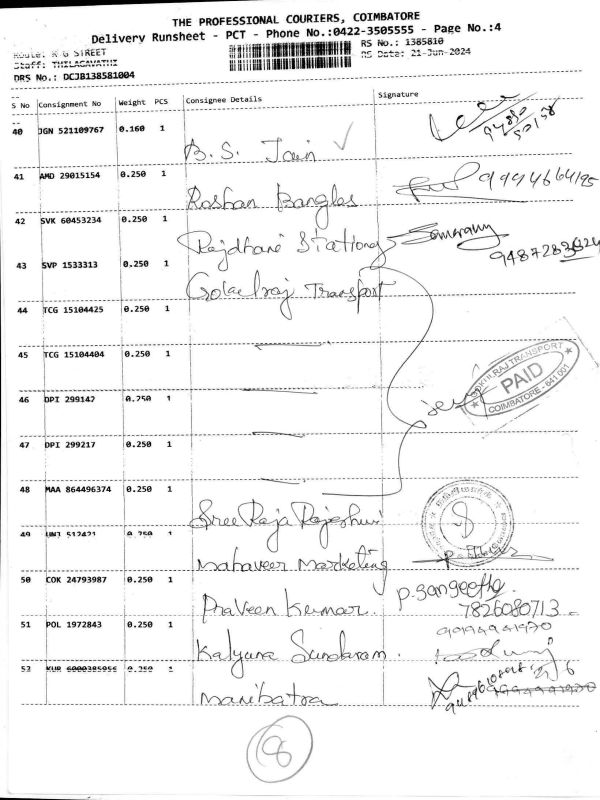 THE PROFESSIONAL COURIERS, COIMBATORE
Delivery Runsheet - PCT - Phone No.:0422-3505555 - Page No.:4
Route: R G STREET
RS No.: 1385810
Staff: THILAGAVATHI
RS Date: 21-Jun-2024
DRS No.: DCJB138581004
S No Consignment No Weight PCS Consignee Details Signature
40 JGN 521109767 0.160 1 B. S. Jain
41 AMD 29015154 0.250 1 Roshan Bangles 9994664195
42 SVK 60453234 0.250 1 Rajdhani
43 SVP 1533313 0.250 1 Transport
44 TCG 15104425 0.250 1
45 TCG 15104404 0.250 1
46 DPI 299142 0.250 1
47 DPI 299217 0.250 1
PAID
COIMBATORE - 641 001
48 MAA 864496374 0.250 1 Sree Raja
49 UNJ 512421 0.250 1 Mahaveer Marketing
50 COK 24793987 0.250 1 Praveen Kumar. P. Sangeetha
7826080713
51 POL 1972843 0.250 1 Kalyana Sundaram.
53 KUR 6000385956 0.250 1 Manibatra
8